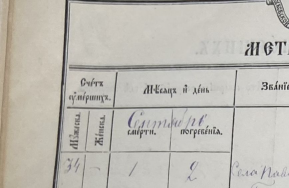 МЕТ
Счетъ умершихъ.
Мѣсяцъ и день
Званіе
Мужеска.
Женска.
Сентябрь
смерти.
погребенія.
34 – 1 2 Села